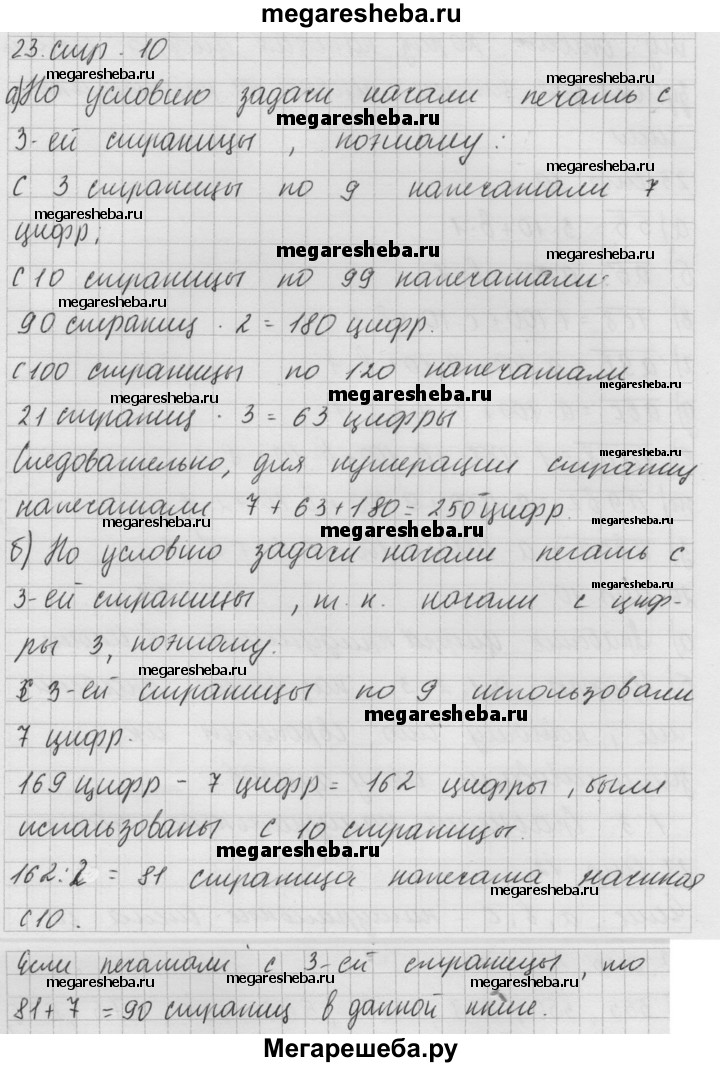 megaresheba.ru
23. стр. 10
megaresheba.ru megaresheba.ru
а) По условию задачи начали печать с
megaresheba.ru
3-ей страницы, поэтому:
megaresheba.ru
С 3 страницы по 9 напечатали 7
megaresheba.ru
цифр;
megaresheba.ru megaresheba.ru
С 10 страницы по 99 напечатали:
megaresheba.ru
90 страниц · 2 = 180 цифр.
С 100 страницы по 120 напечатали
megaresheba.ru megaresheba.ru megaresheba.ru
21 страниц · 3 = 63 цифры
megaresheba.ru
Следовательно, для нумерации страниц
напечатали 7 + 63 + 180 = 250 цифр.
megaresheba.ru megaresheba.ru megaresheba.ru
б) По условию задачи начали печать с
megaresheba.ru
3-ей страницы, т. к. начали с циф-
ры 3, поэтому:
megaresheba.ru
С 3-ей страницы по 9 использовали
megaresheba.ru
7 цифр.
169 цифр - 7 цифр = 162 цифры, были
использованы с 10 страницы.
megaresheba.ru
162:2 = 81 страница напечата начиная
megaresheba.ru
с 10.
Если печатали с 3-ей страницы, то
megaresheba.ru megaresheba.ru megaresheba.ru
81 + 7 = 90 страниц в данной книге.
Мегарешеба.ру